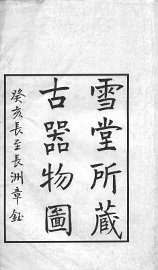 雪堂所藏
古器物圖
癸亥長至長洲章鈺